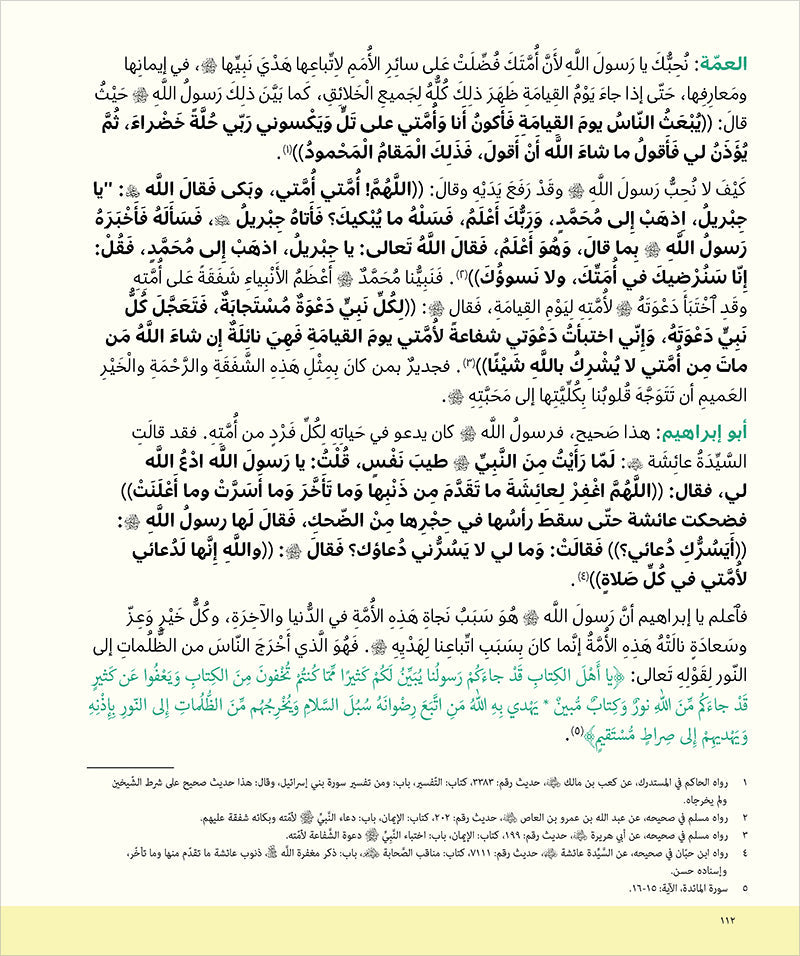 العمّة: نُحِبُّكَ يا رَسولَ اللَّهِ لأَنَّ أُمَّتَكَ فُضِّلَتْ عَلى سائِرِ الأُمَمِ لِاتِّباعِها هَدْيَ نَبِيِّها ﷺ، في إيمانِها
ومَعارِفِها، حَتّى إذا جاءَ يَوْمُ القِيامَةِ ظَهَرَ ذلِكَ كُلُّهُ لِجَميعِ الْخَلائِقِ، كَما بَيَّنَ ذلِكَ رَسولُ اللَّهِ ﷺ حَيْثُ
قالَ: ((يُبْعَثُ النّاسُ يومَ القيامَةِ فَأَكونُ أَنا وَأُمَّتي على تَلٍّ وَيَكْسوني رَبّي حُلَّةً خَضْراءَ، ثُمَّ
يُؤْذَنُ لي فَأَقولُ ما شاءَ اللَّه أَنْ أَقولَ، فَذَلِكَ الْمَقامُ الْمَحْمودُ))(١).
كَيْفَ لا نُحِبُّ رَسولَ اللَّهِ ﷺ وقَدْ رَفَعَ يَدَيْهِ وقالَ: ((اللَّهُمَّ! أُمَّتي أُمَّتي، وبَكى فَقالَ اللَّه ﷻ: "يا
جِبْريلُ، اِذهَبْ إلى مُحَمَّدٍ، وَرَبُّكَ أَعْلَمُ، فَسَلْهُ ما يُبْكيكَ؟ فَأَتاهُ جِبْريلُ ﷺ، فَسَأَلَهُ فَأَخْبَرَهُ
رَسولُ اللَّهِ ﷺ بِما قالَ، وَهُوَ أَعْلَمُ، فَقالَ اللَّهُ تَعالى: يا جِبْريلُ، اذهَبْ إلى مُحَمَّدٍ، فَقُلْ:
إِنّا سَنُرْضيكَ في أُمَتِّكَ، ولا نَسوؤُكَ))(٢). فَنَبِيُّنا مُحَمَّدٌ ﷺ أَعْظَمُ الأَنْبِياءِ شَفَقَةً عَلى أُمَّتِهِ
وقَدِ ٱخْتَبَأَ دَعْوَتَهُ ﷺ لأُمَّتِهِ لِيَوْمِ القِيامَةِ، فَقال ﷺ: ((لِكُلِّ نَبِيٍّ دَعْوَةٌ مُسْتَجابَةٌ، فَتَعَجَّلَ كُلُّ
نَبِيٍّ دَعْوَتَهُ، وَإِنّي اختبأتُ دَعْوَتي شفاعةً لأُمَّتي يومَ القيامَةِ فَهِيَ نائِلَةٌ إن شاءَ اللَّهُ مَن
ماتَ مِن أُمَّتي لا يُشْرِكُ باللَّهِ شَيْئًا))(٣). فجديرٌ بمن كانَ بِمِثْلِ هَذِهِ الشَّفَقَةِ والرَّحْمَةِ والْخَيْرِ
العَميمِ أن تَتَوَجَّهَ قُلوبُنا بِكُلِّيَّتِها إلى مَحَبَّتِهِ ﷺ.
أبو إبراهيم: هذا صَحيح، فرسولُ اللَّه ﷺ كان يدعو في حَياتِهِ لِكُلِّ فَرْدٍ من أُمَّتِهِ. فقد قالَتِ
السَّيِّدَةُ عائِشَة: لَمّا رَأَيْتُ مِنَ النَّبِيِّ ﷺ طيبَ نَفْسٍ، قُلْتُ: يا رَسولَ اللَّه ادْعُ اللَّه
لي، فقال: ((اللَّهُمَّ اغْفِرْ لِعائِشَةَ ما تَقَدَّمَ مِن ذَنْبِها وَما تَأَخَّرَ وَما أَسَرَّتْ وما أَعْلَنَتْ))
فضحكت عائشة حتّى سقطَ رأسُها في حِجْرِها مِنْ الضّحكِ، فَقالَ لَها رسولُ اللَّهِ ﷺ:
((أَيَسُرُّكِ دُعائي؟)) فَقالَتْ: وَما لي لا يَسُرُّني دُعاؤك؟ فَقالَ ﷺ: ((واللَّهِ إِنَّها لَدُعائي
لأُمَّتي في كُلِّ صَلاةٍ))(٤).
فٱعلم يا إبراهيم أنَّ رَسولَ اللَّه ﷺ هُوَ سَبَبُ نَجاةِ هَذِهِ الأُمَّةِ في الدُّنيا والآخِرَةِ، وكُلُّ خَيْرٍ وَعِزّ
وسَعادَةٍ نالَتْهُ هَذِهِ الأُمَّةُ إنَّما كانَ بِسَبَبِ اتِّباعِنا لِهَدْيِهِ ﷺ. فَهُوَ الَّذي أَخْرَجَ النّاسَ من الظُّلُماتِ إلى
النّور لِقَوْلِهِ تَعالى: ﴿يا أَهْلَ الكِتابِ قَدْ جاءَكُمْ رَسولُنا يُبَيِّنُ لَكُمْ كَثيرًا مِّمّا كُنتُمْ تُخْفونَ مِنَ الكِتابِ وَيَعْفُوا عَن كَثيرٍ
قَدْ جاءَكُم مِّنَ اللهِ نورٌ وَكِتابٌ مُّبينٌ * يَهْدي بِهِ اللهُ مَنِ اتَّبَعَ رِضْوانَهُ سُبُلَ السَّلامِ وَيُخْرِجُهُم مِّنَ الظُّلُماتِ إِلى النّورِ بِإِذْنِهِ
وَيَهْديهِمْ إِلى صِراطٍ مُّسْتَقيمٍ﴾(٥).
١ رواه الحاكم في المستدرك، عن كعب بن مالك، حديث رقم: ٣٣٨٣، كتاب: التّفسير، باب: ومن تفسير سورة بني إسرائيل، وقال: هذا حديث صحيح على شرط الشّيخين
ولم يخرجاه.
٢ رواه مسلم في صحيحه، عن عبد الله بن عمرو بن العاص، حديث رقم: ٢٠٢، كتاب: الإيمان، باب: دعاء النَّبيِّ ﷺ لأمّته وبكائه شفقة عليهم.
٣ رواه مسلم في صحيحه، عن أبي هريرة، حديث رقم: ١٩٩، كتاب: الإيمان، باب: اختباء النَّبِيِّ ﷺ دعوة الشّفاعة لأمّته.
٤ رواه ابن حبّان في صحيحه، عن السَّيِّدة عائشة، حديث رقم: ٧١١١، كتاب: مناقب الصَّحابة، باب: ذكر مغفرة اللَّه ﷻ، ذنوب عائشة ما تقدّم منها وما تأخّر،
وإسناده حسن.
٥ سورة المائدة، الآية: ١٥-١٦.
١١٢